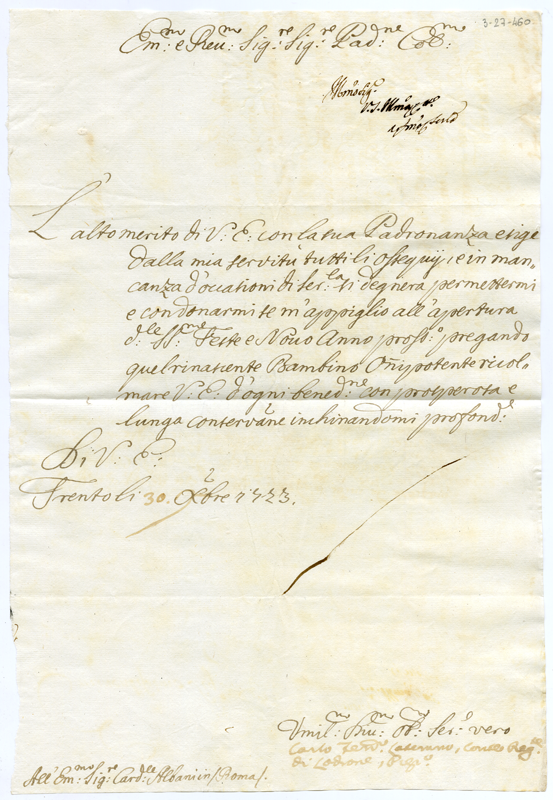 3-27-460
Em:mo e Reu:mo Sig:re Sig:re Pad:ne Col:mo
L'alto merito di V: E: con la sua Padronanza esige
dalla mia servitù tutti li ossequij, e in man=
canza d'occationi di ser:la si degnerà permettermi
e condonarmi se m'appiglio all'apertura
d:lle SS:me Feste e Novo Anno pross:o pregando
quel rinascente Bambino Onipotente ricol=
mare V: E: d'ogni bened:ne con prosperosa e
lunga conservane inchinandomi profond:te
Di V: E:
Trento li 30. Xbre 1723.
Vmil:mo Diu:mo Ob:mo Ser:o vero
Carlo
di Lodrone,
All'Em:mo Sig:re Card:le Albani in / Roma /.